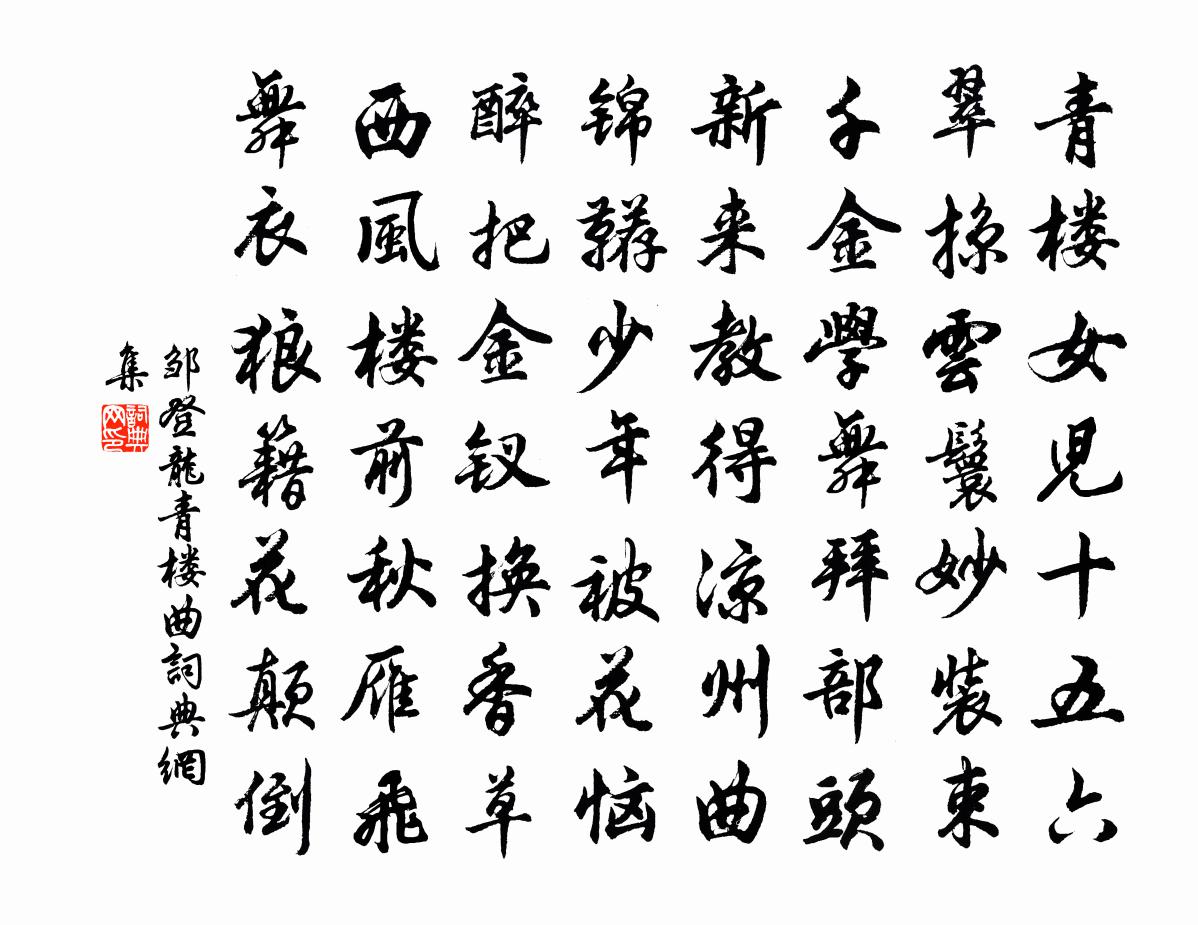 青楼女児十五六
翠掠雲鬟妙裝束
千金學舞拜部頭
新来教得凉州曲
锦鞯少年被花恼
醉把金钗换香草
西風楼前秋雁飛
舞衣狼籍花颠倒
邹登龍青楼曲詞典網
集
詞典
网印